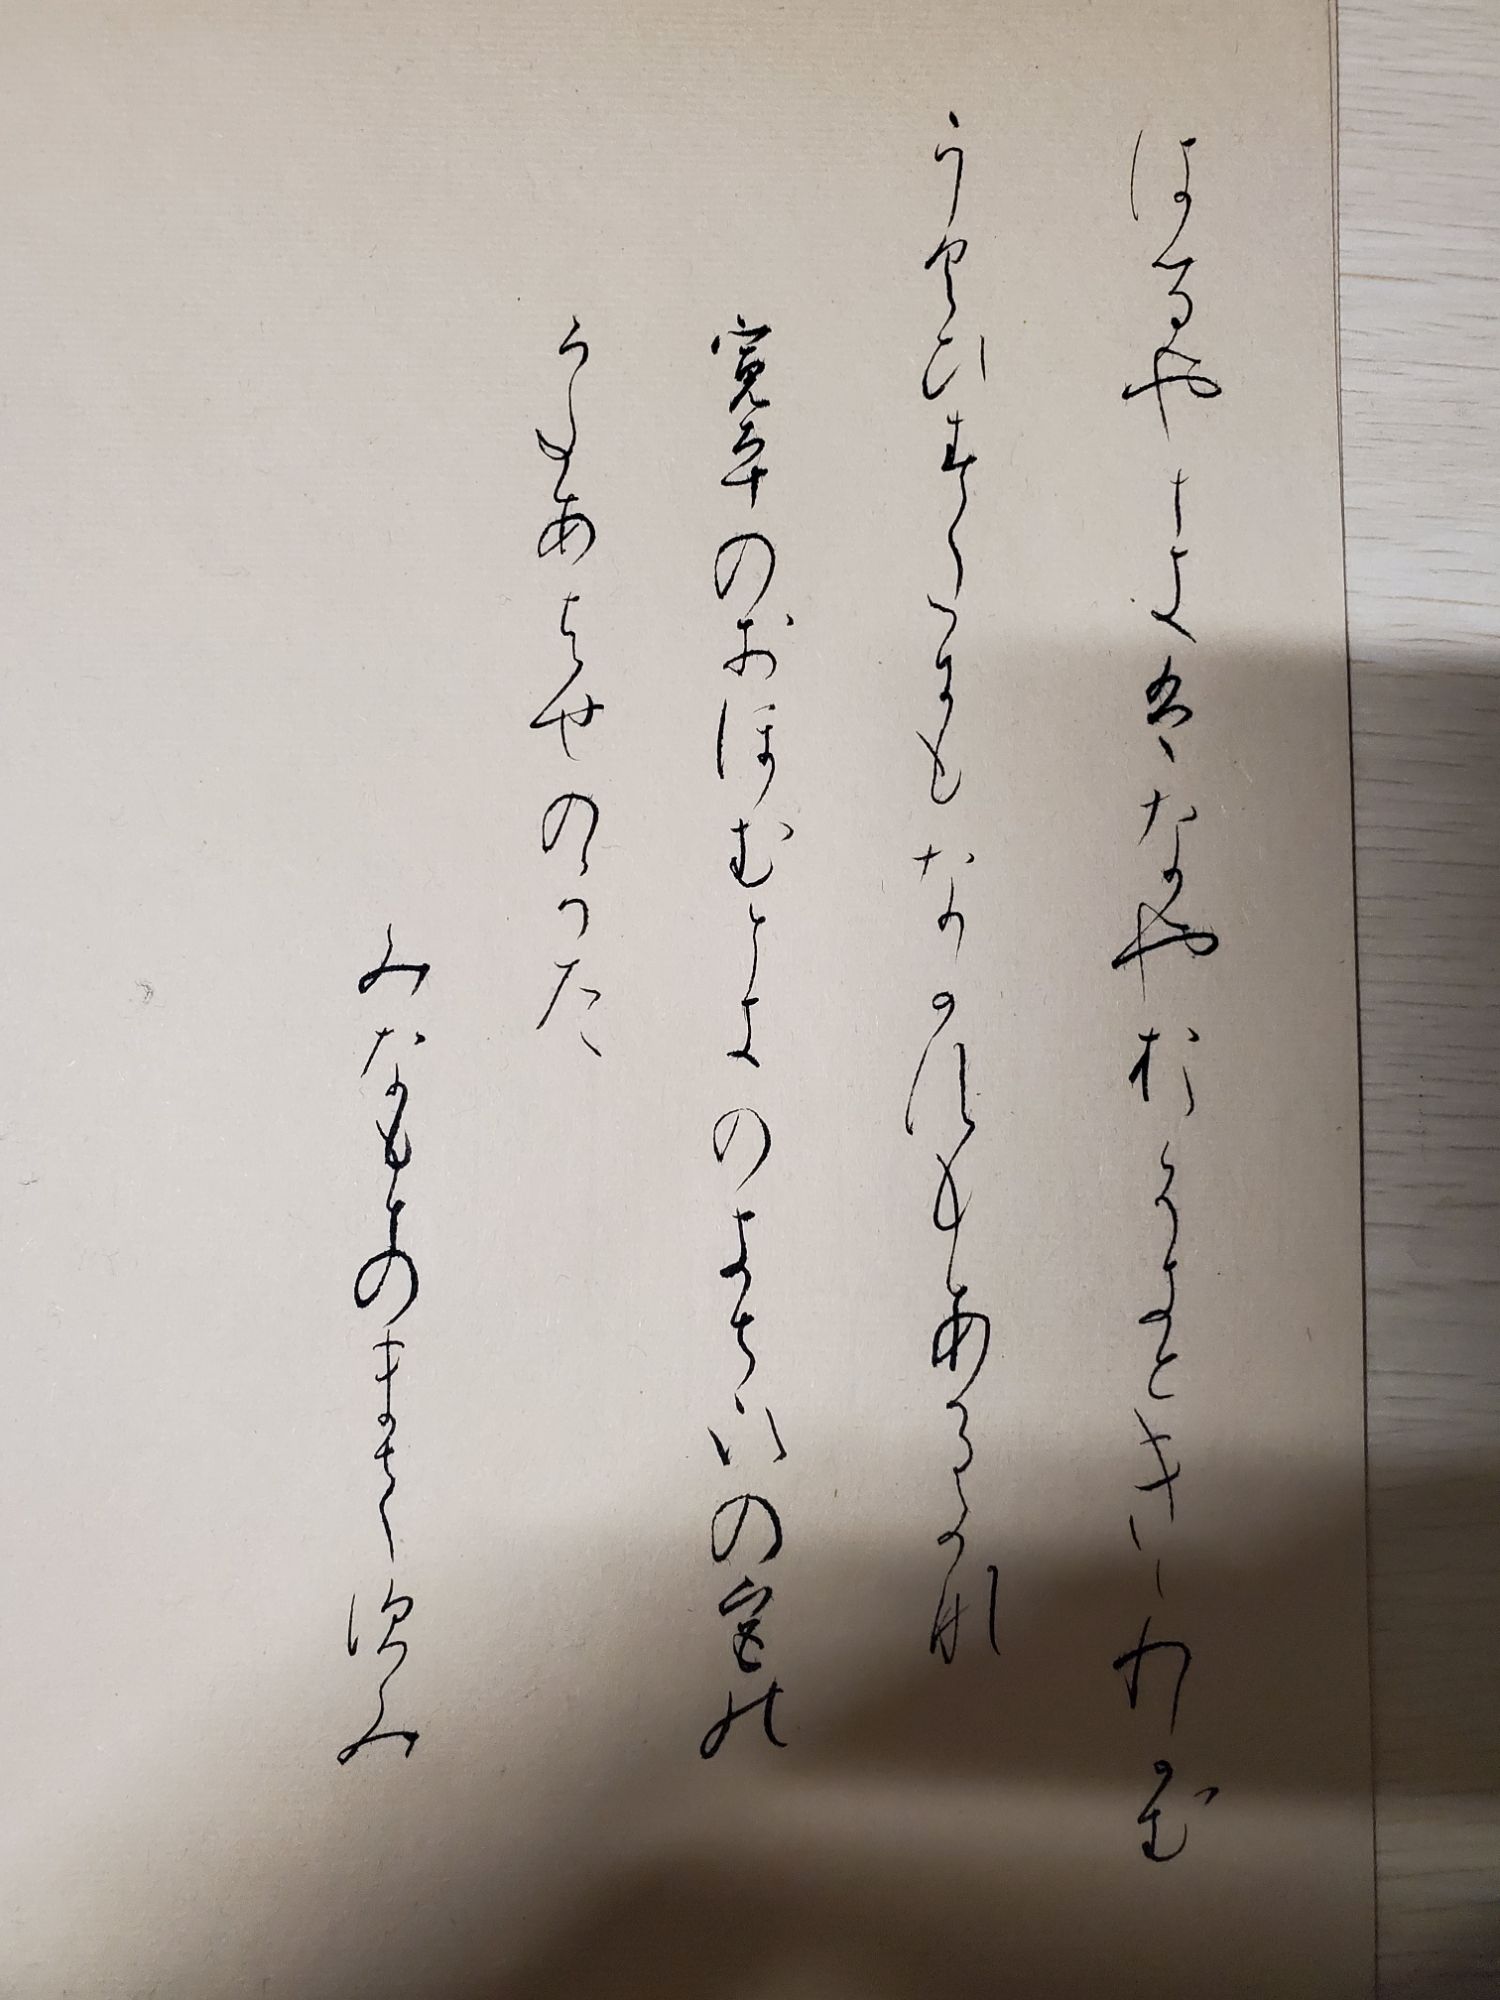 はるやときはなやおそきときゝわかむ
うくひすたにもなかすもあるかな
寛平のおほむときのきさいの宮の
うたあはせのうた
みなもとのまさすみ